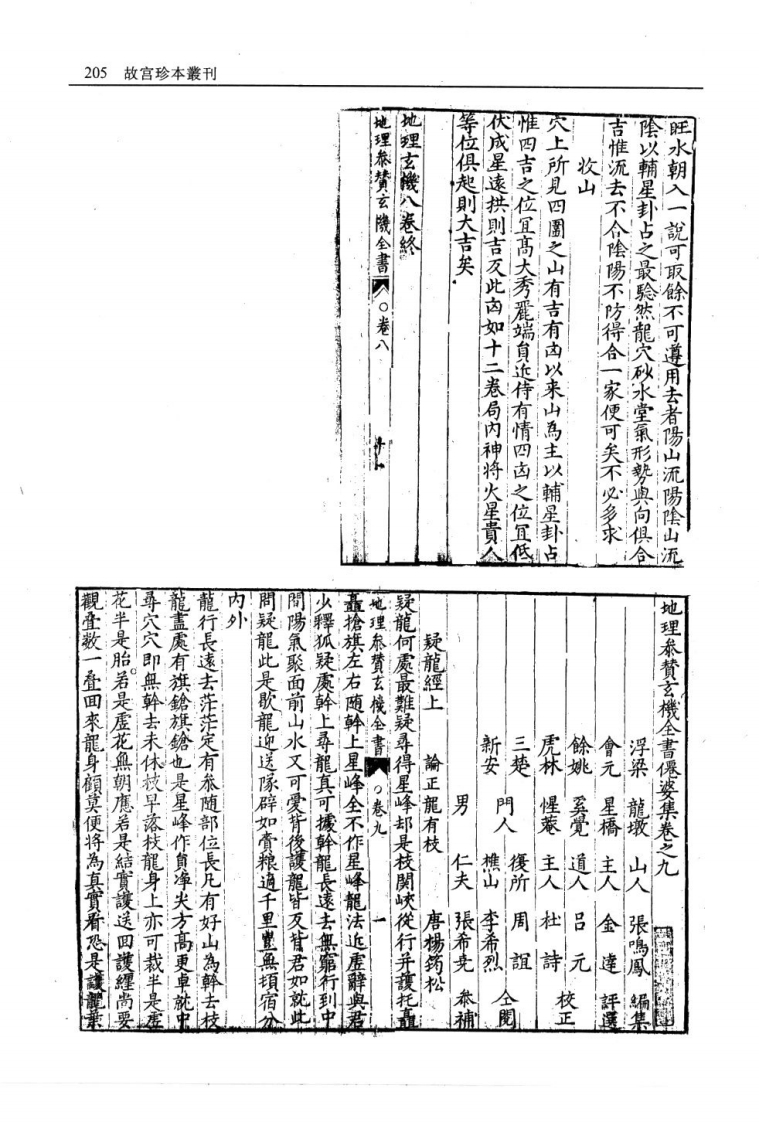 205 故宮珍本叢刊
旺水朝入一說可取餘不可遵用去者陽山流陽陰山流
陰以輔星卦占之最驗然龍穴砂水堂氣形勢與向俱合
吉惟流去不合陰陽不防得合一家便可矣不必多求
收山
穴上所見四圍之山有吉有凶以来山為主以輔星卦占
惟四吉之位冝高大秀麗端負近侍有情四凶之位冝低
伏成星遠拱則吉反此凶如十二卷局內神將火星貴人
等位俱起則大吉矣
地理玄機八卷終
地理叅贊玄機全書 ○卷八
地理叅贊玄機全書僊婆集卷之九
浮梁 龍墩 山人 張鳴鳳 編集
會元 星橋 主人 金達 評選
餘姚 奚覺 道人 呂元
虎林 惺菴 主人 杜詩 校正
三楚 門人 復所 周誼
新安 樵山 李希烈 仝閱
男 仁夫 張希堯 叅補
疑龍經上 論正龍有枝 唐楊筠松
疑龍何處最難疑尋得星峰却是枝関峽從行并護托矗
地理叅贊玄機全書 ○卷九 一
矗搶旗左右随幹上星峰全不作星峰龍法近虛辭與君
少釋狐疑處幹上尋龍真可據幹龍長遠去無窮行到中
間陽氣聚面前山水又可愛背後護龍皆反背君如就此
問疑龍此是歇龍迎送隊辟如賞粮適千里豈無頓宿分
內外
龍行長遠去茫茫定有叅随部位長凡有好山為幹去枝
龍盡處有旗鎗旗鎗也是星峰作負淨尖方高更卓就中
尋穴穴即無幹去未休枝早落枝龍身上亦可裁半是虛
花半是胎若是虛花無朝應若是結實護送回護纒尚要
觀叠数一叠回來龍身顧莫便将為真實看恐是護龍葉